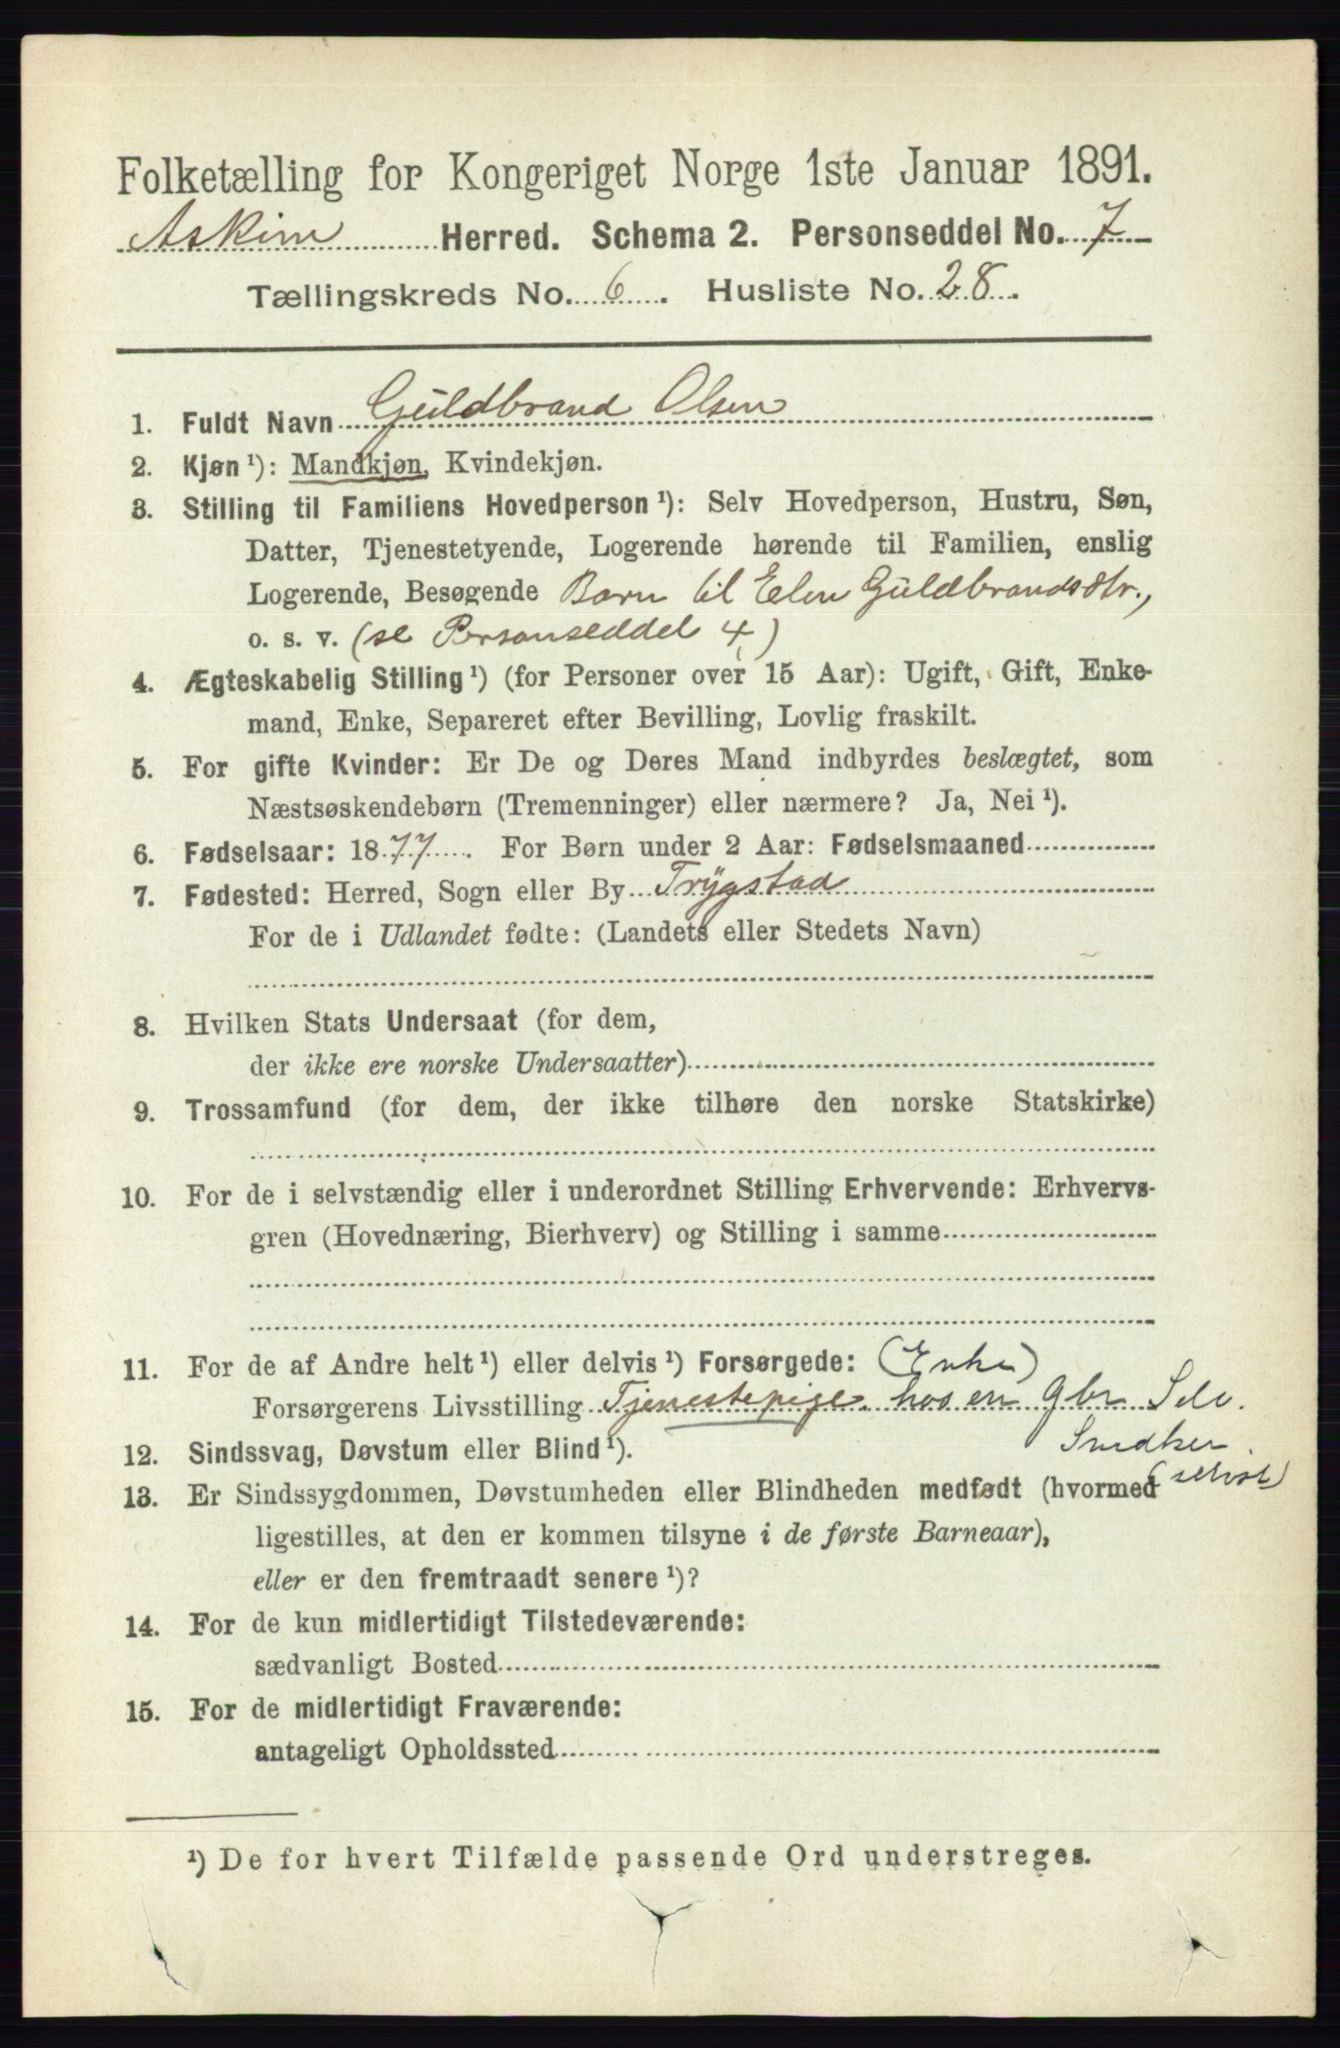 Folketælling for Kongeriget Norge 1ste Januar 1891.
Askim Herred. Schema 2. Personseddel No. 7
Tællingskreds No. 6. Husliste No. 28.
1. Fuldt Navn Guldbrand Olsen
2. Kjøn ¹): Mandkjøn, Kvindekjøn.
3. Stilling til Familiens Hovedperson ¹): Selv Hovedperson, Hustru, Søn,
Datter, Tjenestetyende, Logerende hørende til Familien, enslig
Logerende, Besøgende Barn til Elen Guldbrandsdtr.,
o. s. v. (se Personseddel 4)
4. Ægteskabelig Stilling ¹) (for Personer over 15 Aar): Ugift, Gift, Enke-
mand, Enke, Separeret efter Bevilling, Lovlig fraskilt.
5. For gifte Kvinder: Er De og Deres Mand indbyrdes beslægtet, som
Næstsøskendebørn (Tremenninger) eller nærmere? Ja, Nei ¹).
6. Fødselsaar: 1877. For Børn under 2 Aar: Fødselsmaaned
7. Fødested: Herred, Sogn eller By Trygstad
For de i Udlandet fødte: (Landets eller Stedets Navn)
8. Hvilken Stats Undersaat (for dem,
der ikke ere norske Undersaatter)
9. Trossamfund (for dem, der ikke tilhøre den norske Statskirke)
10. For de i selvstændig eller i underordnet Stilling Erhvervende: Erhvervs-
gren (Hovednæring, Bierhverv) og Stilling i samme
11. For de af Andre helt ¹) eller delvis ¹) Forsørgede: (Enke)
Forsørgerens Livsstilling Tjenestepige. hos en Gbr Selv.
12. Sindssvag, Døvstum eller Blind ¹).
13. Er Sindssygdommen, Døvstumheden eller Blindheden medfødt (hvormed
ligestilles, at den er kommen tilsyne i de første Barneaar),
eller er den fremtraadt senere ¹)?
14. For de kun midlertidigt Tilstedeværende:
sædvanligt Bosted
15. For de midlertidigt Fraværende:
antageligt Opholdssted
¹) De for hvert Tilfælde passende Ord understreges.